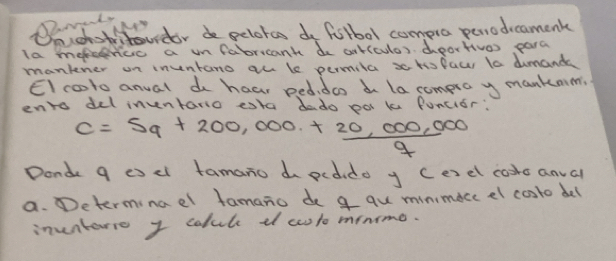 Un distribuidor de pelotas de fútbol compra periodicamente
la mercancia a un fabricante de articulos deportivos para
mantener un inventario que le permita satisfacer la demanda
El costo anual de hacer pedidos de la compra y mantenimi-
ento del inventario esta dado por la función:
C = 5q + 200,000. + 20,000,000 / q
Donde q es el tamaño de pedido y C es el costo anual
a. Determina el tamaño de q que minimice el costo del
inventario y calcule el costo minimo.